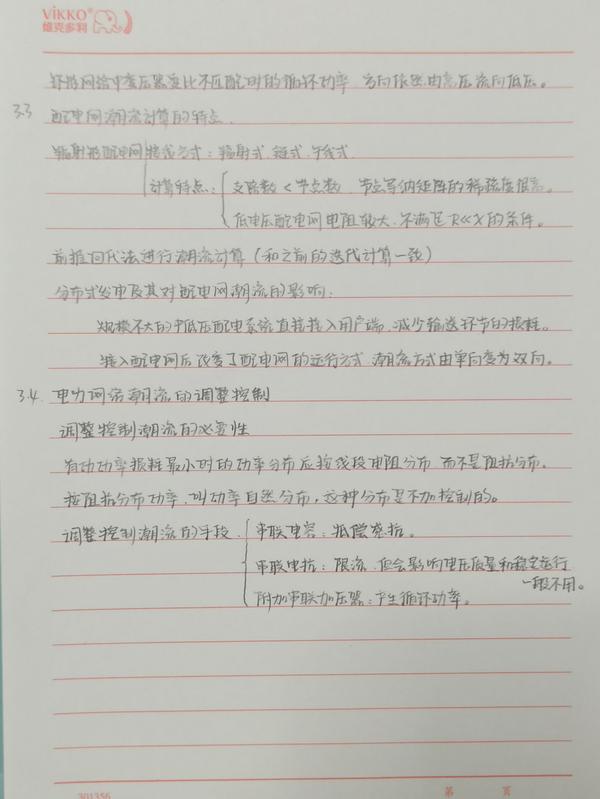 ViKKO®
维克多利
环形网络中变压器变比不匹配时的循环功率，方向依然由高压流向低压。
3.3 配电网潮流计算的特点.
辐射形配电网 接线方式：辐射式，链式，干线式.
计算特点： 支路数<节点数，节点导纳矩阵的稀疏度很高.
低电压配电网电阻较大，不满足R≪X的条件。
前推回代法进行潮流计算（和之前的迭代计算一致）
分布式发电及其对配电网潮流的影响：
规模不大的中低压配电系统直接接入用户端，减少输送环节的损耗.
接入配电网后改变了配电网的运行方式，潮流方式由单向变为双向。
3.4. 电力网络潮流的调整控制
调整控制潮流的必要性
有功功率损耗最小时的功率分布应按线段电阻分布，而不是阻抗分布。
按阻抗分布功率，叫功率自然分布，这种分布是不加控制的。
调整控制潮流的手段 串联电容：抵偿感抗.
串联电抗：限流，但会影响电压质量和稳定运行
一般不用。
附加串联加压器：产生循环功率。
301356 第 页